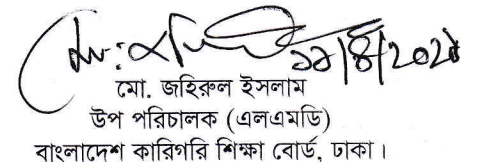 মো. জহিরুল ইসলাম
উপ পরিচালক (এলএমডি)
বাংলাদেশ কারিগরি শিক্ষা বোর্ড, ঢাকা।